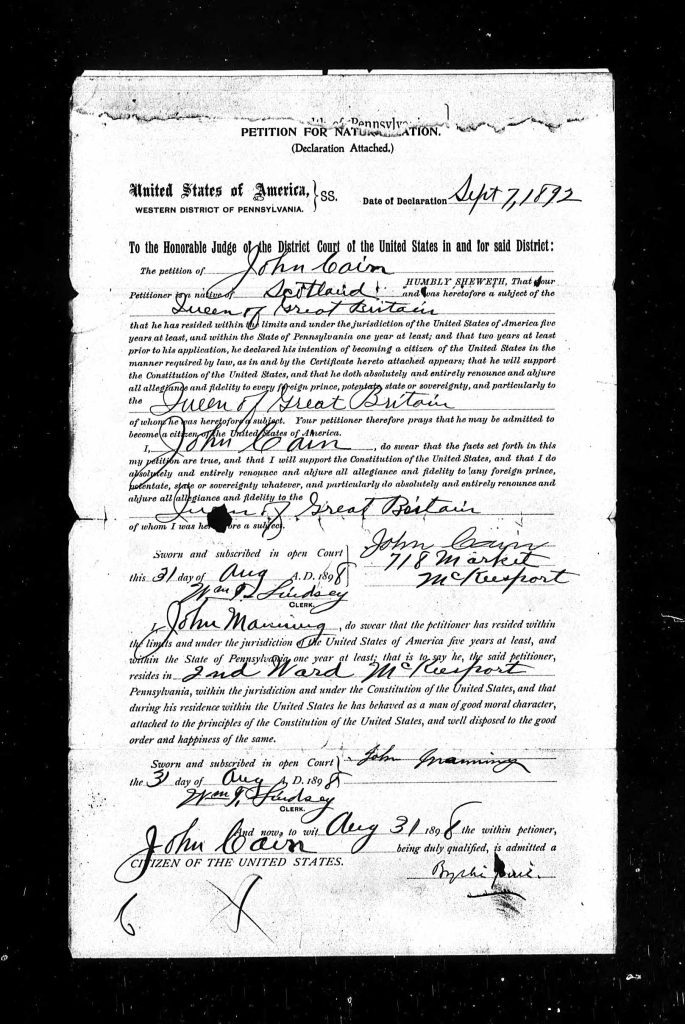 of Pennsylva
PETITION FOR NATURALIZATION.
(Declaration Attached.)
United States of America, } SS.
WESTERN DISTRICT OF PENNSYLVANIA.
Date of Declaration Sept 7, 1892
To the Honorable Judge of the District Court of the United States in and for said District:
The petition of John Cain
HUMBLY SHEWETH, That your
Petitioner is a native of Scotland and was heretofore a subject of the
Queen of Great Britain
that he has resided within the limits and under the jurisdiction of the United States of America five
years at least, and within the State of Pennsylvania one year at least; and that two years at least
prior to his application, he declared his intention of becoming a citizen of the United States in the
manner required by law, as in and by the Certificate hereto attached appears; that he will support
the Constitution of the United States, and that he doth absolutely and entirely renounce and abjure
all allegiance and fidelity to every foreign prince, potentate, state or sovereignty, and particularly to
the Queen of Great Britain
of whom he was heretofore a subject. Your petitioner therefore prays that he may be admitted to
become a citizen of the United States of America.
I, John Cain, do swear that the facts set forth in this
my petition are true, and that I will support the Constitution of the United States, and that I do
absolutely and entirely renounce and abjure all allegiance and fidelity to any foreign prince,
potentate, state or sovereignty whatever, and particularly do absolutely and entirely renounce and
abjure all allegiance and fidelity to the
Queen of Great Britain
of whom I was heretofore a subject.
Sworn and subscribed in open Court
this 31 day of Aug A.D. 1898
Wm T. Lindsey
CLERK.
John Cain
718 Market
McKeesport
I, John Manning, do swear that the petitioner has resided within
the limits and under the jurisdiction of the United States of America five years at least, and
within the State of Pennsylvania one year at least; that is to say he, the said petitioner,
resides in 2nd Ward McKeesport
Pennsylvania, within the jurisdiction and under the Constitution of the United States, and that
during his residence within the United States he has behaved as a man of good moral character,
attached to the principles of the Constitution of the United States, and well disposed to the good
order and happiness of the same.
Sworn and subscribed in open Court
the 31 day of Aug A.D. 1898
Wm T. Lindsey
CLERK.
John Manning
And now, to wit Aug 31 1898 the within petitioner,
John Cain being duly qualified, is admitted a
CITIZEN OF THE UNITED STATES.
By the
6 X